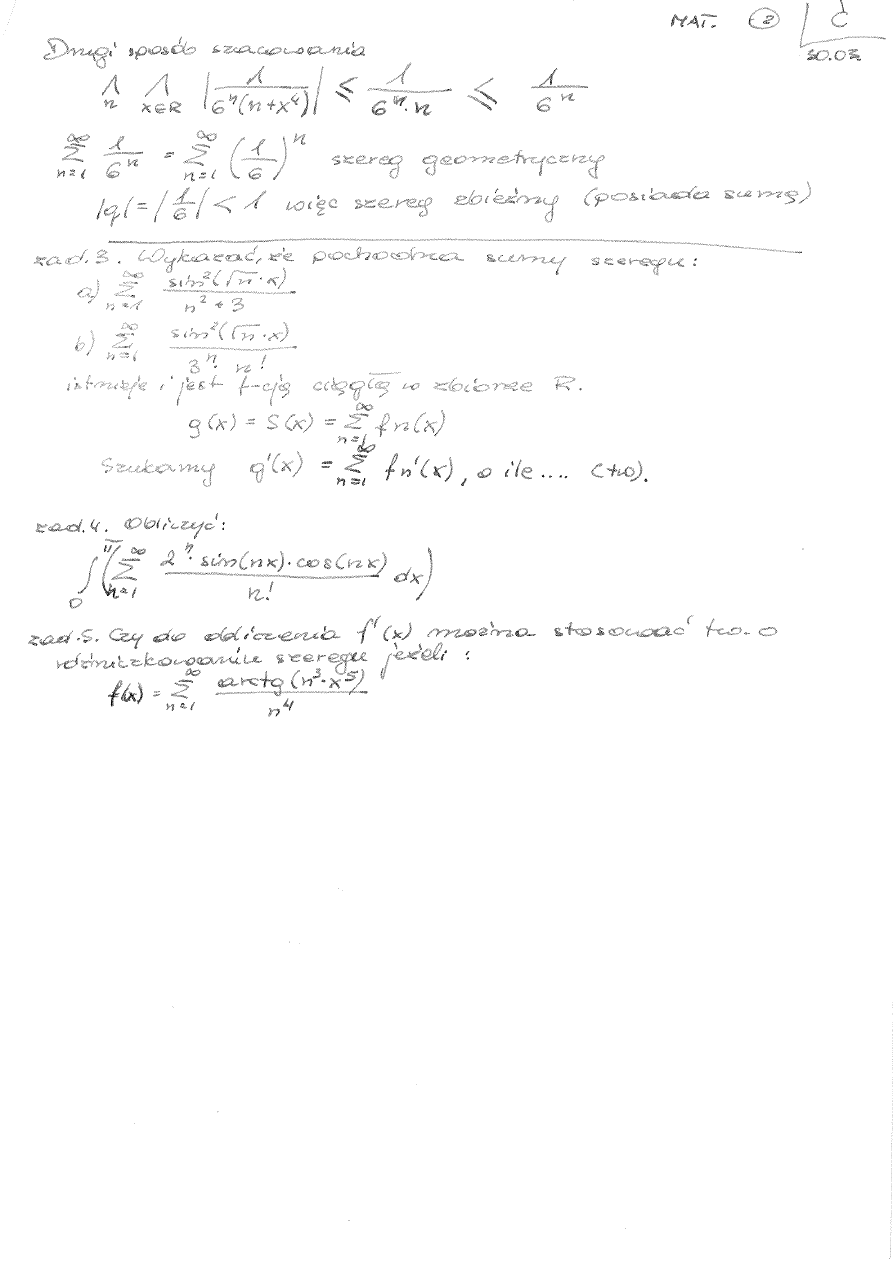 MAT. (2) Ć
30.03
Drugi sposób szacowania
Λ_n Λ_{x∈R} |1/(6^n(n+x^4))| ≤ 1/(6^n·n) ≤ 1/6^n
∑_{n=1}^∞ 1/6^n = ∑_{n=1}^∞ (1/6)^n szereg geometryczny
|q|=|1/6| < 1 więc szereg zbieżny (posiada sumę)
zad.3. Wykazać, że pochodna sumy szeregu:
a) ∑_{n=1}^∞ sin²(√n·x)/(n²+3)
b) ∑_{n=1}^∞ sin²(√n·x)/(3^n·n!)
istnieje i jest f-cją ciągłą w zbiorze R.
g(x) = S(x) = ∑_{n=1}^∞ fn(x)
Szukamy g'(x) = ∑_{n=1}^∞ fn'(x), o ile .... (tw).
zad.4. Obliczyć:
∫_0^π (∑_{n=1}^∞ 2^n·sin(nx)·cos(nx)/n! dx)
zad.5. Czy do obliczenia f'(x) można stosować tw. o
różniczkowaniu szeregu jeżeli :
f(x) = ∑_{n=1}^∞ arctg(n³·x⁵)/n⁴